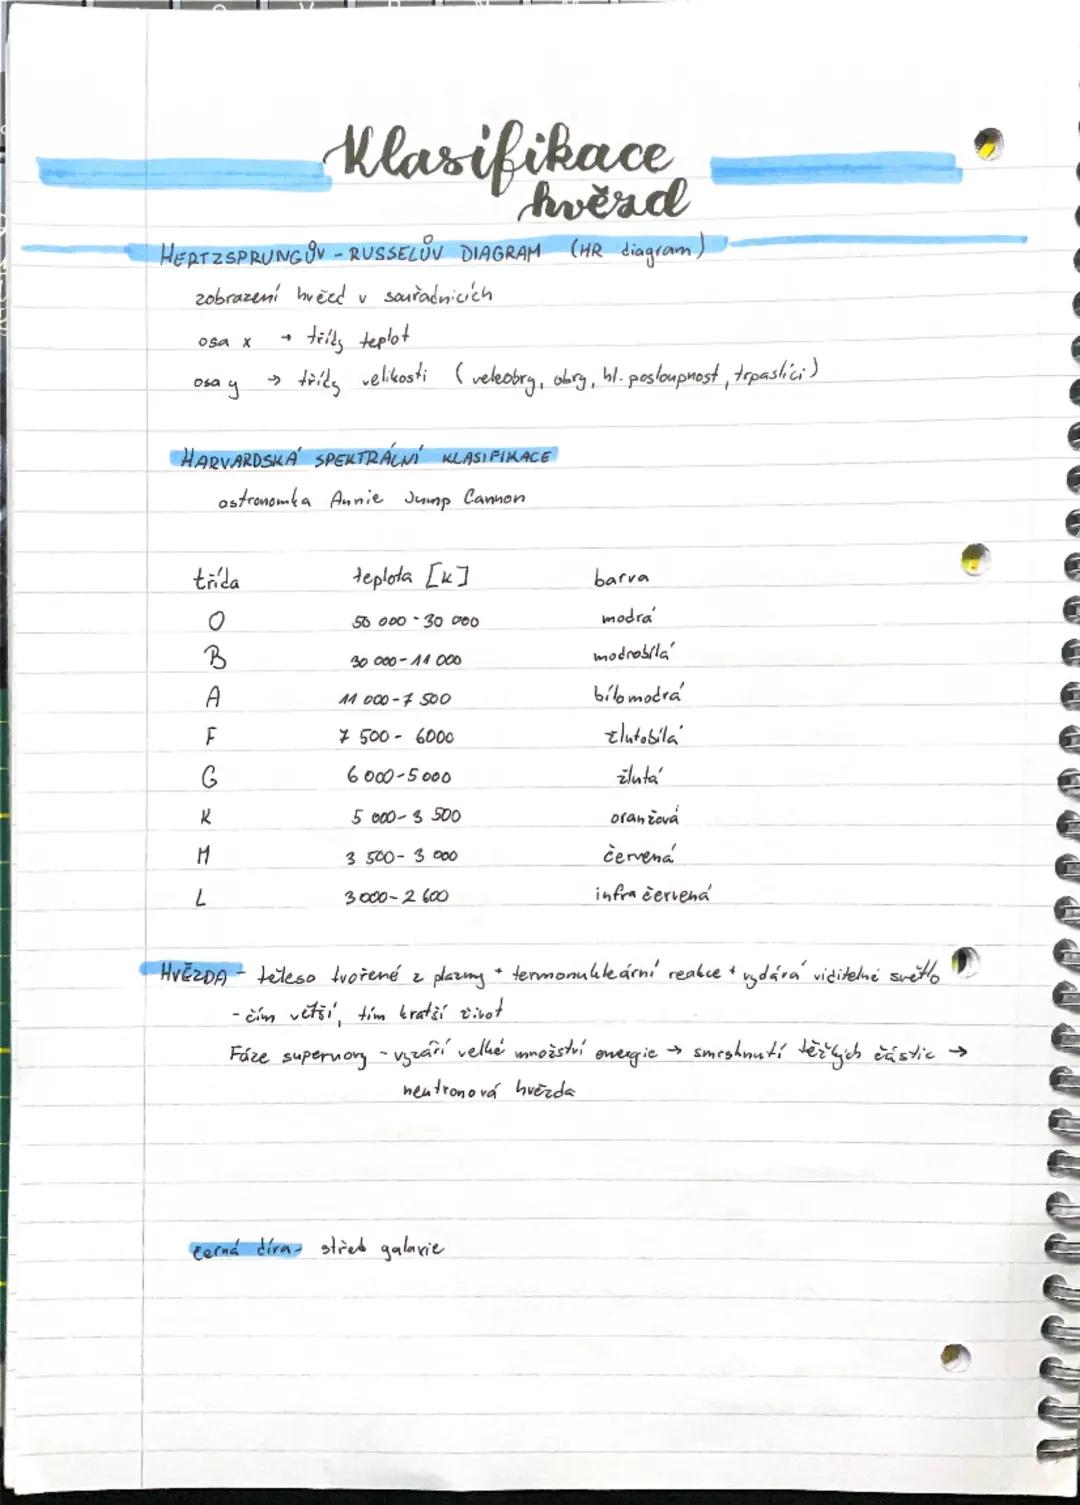 Klasifikace
hvězd
HERTZSPRUNGŮV - RUSSELŮV DIAGRAM (HR diagram)
zobrazení hvězd v souřadnicích
osa x → třídy teplot
osa y → třídy velikosti (veleobry, obry, hl. posloupnost, trpaslíci)
HARVARDSKÁ SPEKTRÁLNÍ KLASIFIKACE
astronomka Annie Jump Cannon
třída teplota [K] barva
O 50 000 - 30 000 modrá
B 30 000 - 11 000 modrobílá
A 11 000 - 7 500 bílomodrá
F 7 500 - 6000 žlutobílá
G 6 000 - 5 000 žlutá
K 5 000 - 3 500 oranžová
M 3 500 - 3 000 červená
L 3 000 - 2 600 infračervená
HVĚZDA - těleso tvořené z plazmy + termonukleární reakce + vydává viditelné světlo
- čím větší, tím kratší život
Fáze supernovy - vyzáří velké množství energie → smrsknutí těžkých částic →
neutronová hvězda
černá díra - střed galaxie